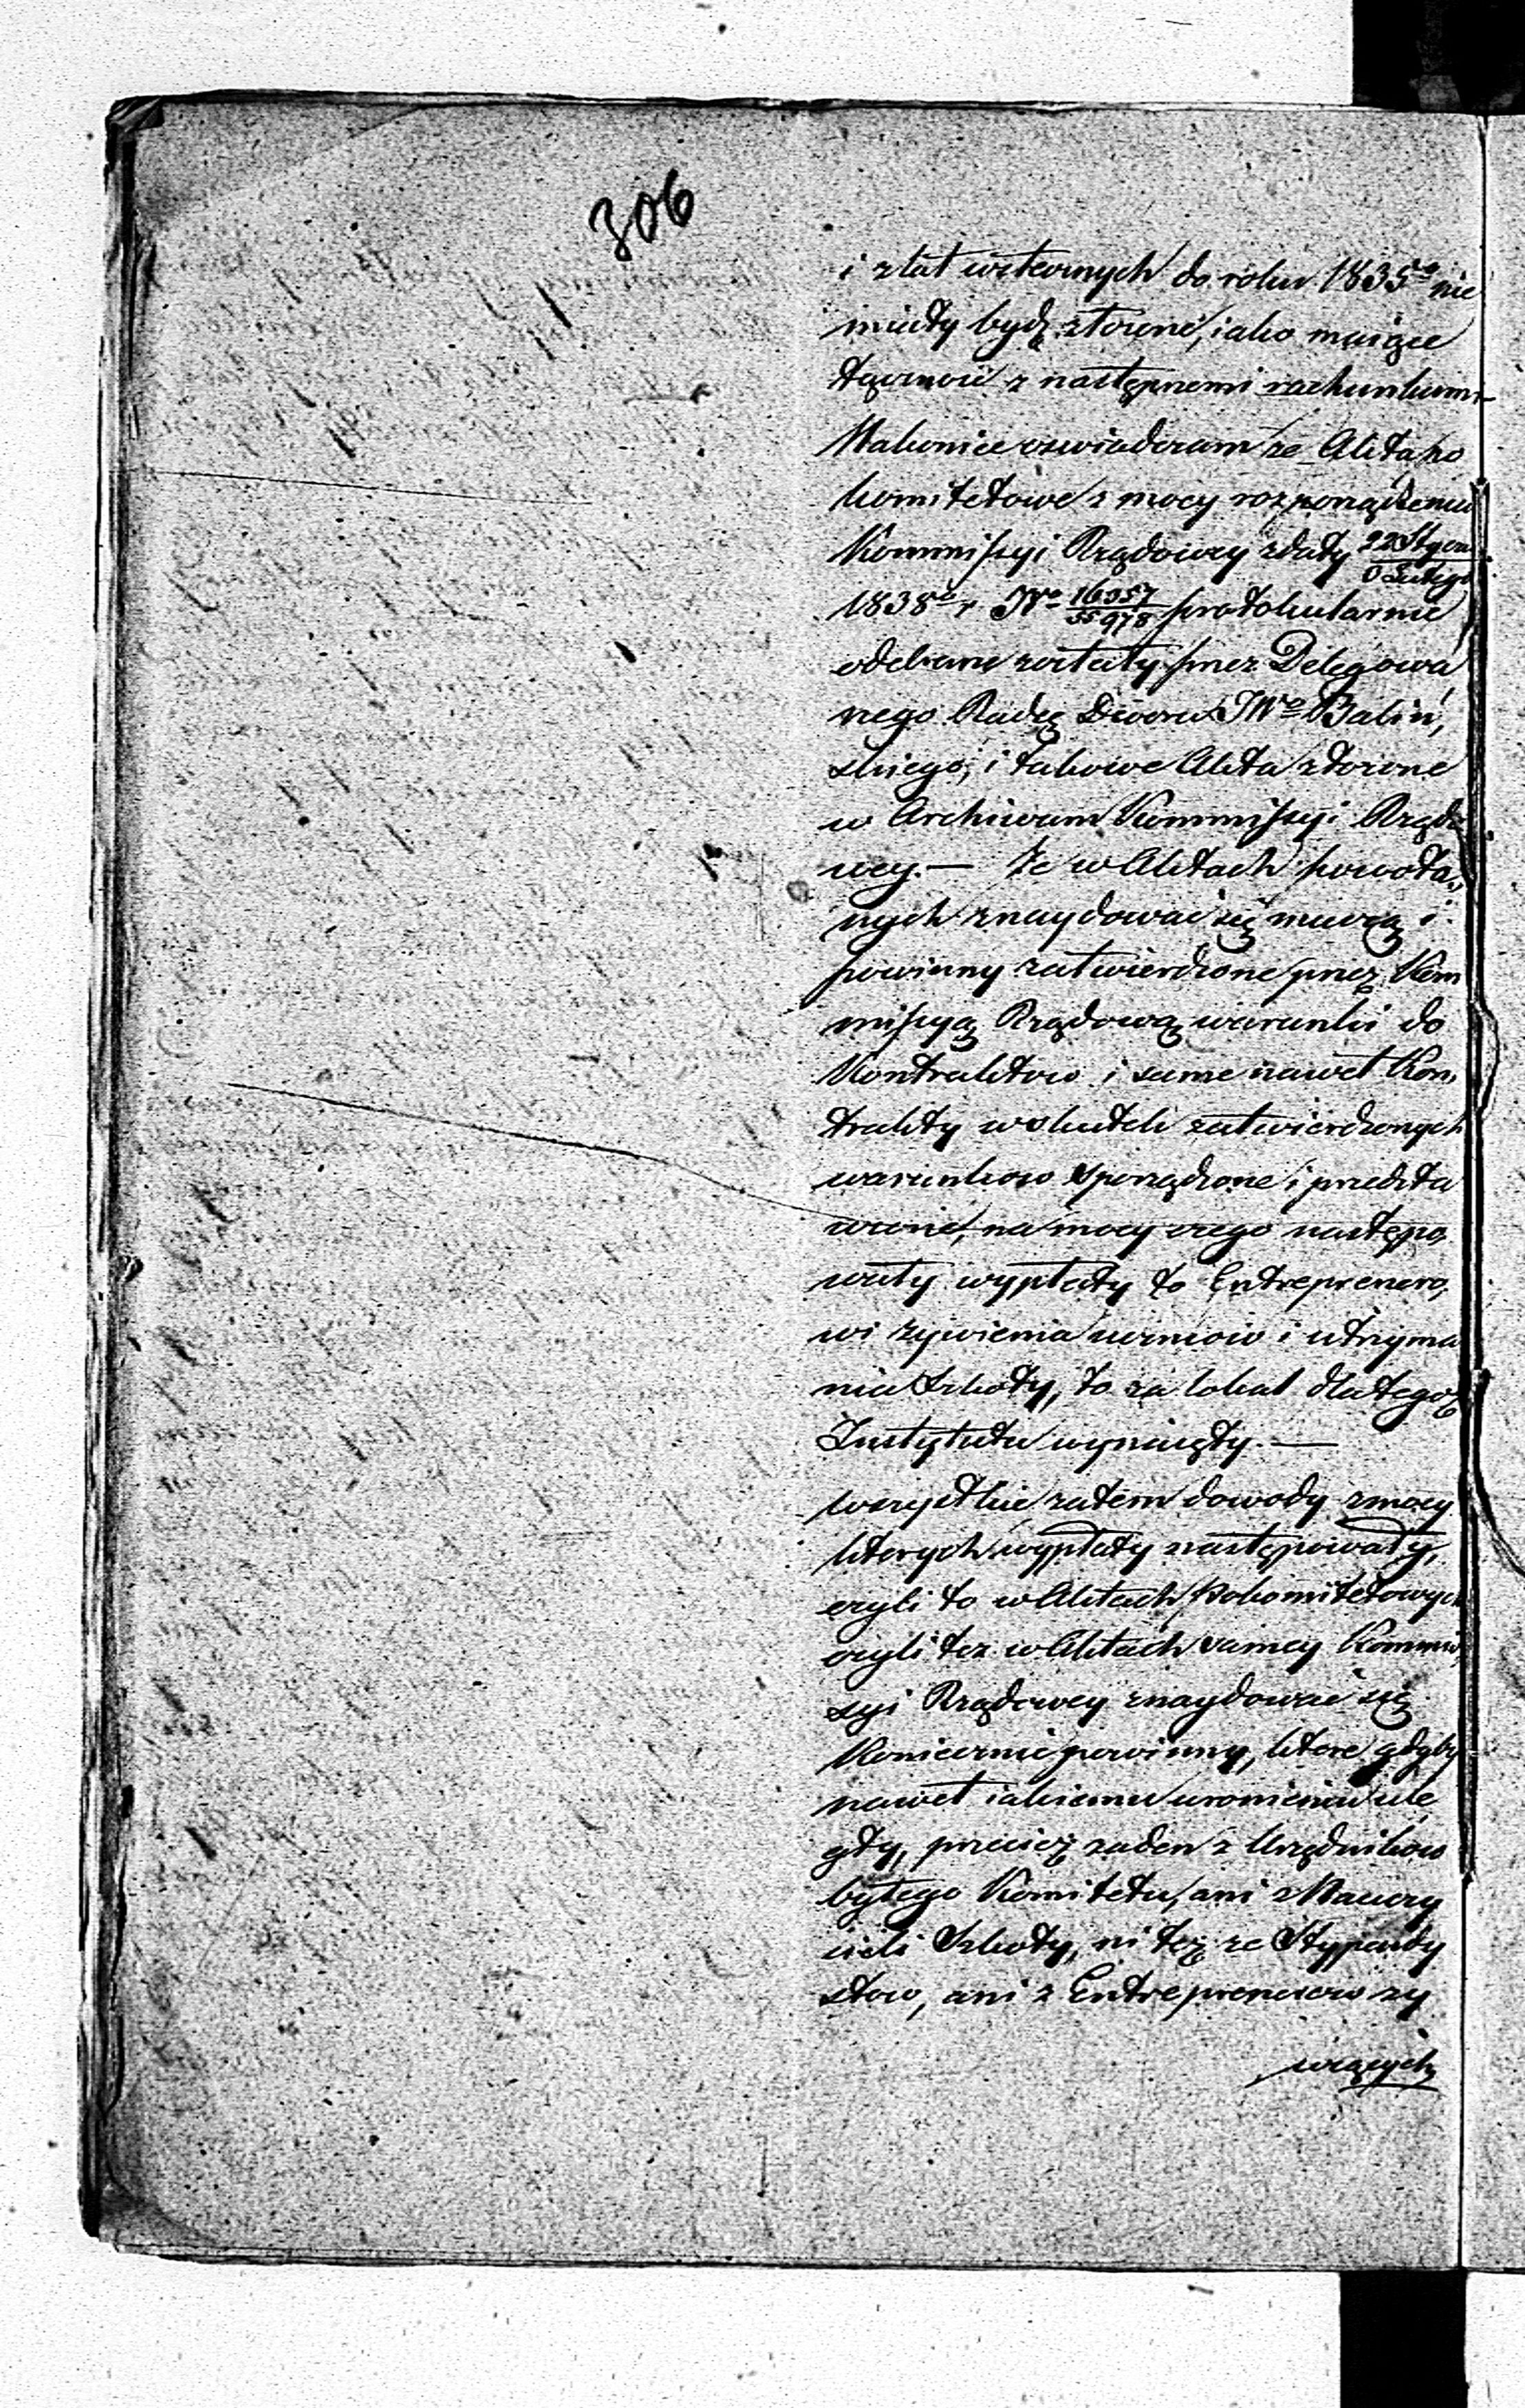 306
i z lat wstecznych do roku 1835go nie
miały bydź złożone, iako maiące
łączność z następnemi rachunkami
Nakoniec oswiadczam ze Akta po
komitetowe z mocy rozporządzenia
Kommissyi Rządowey z daty 22 Stycz
Lutego
1838go r No 16357/55978 protokularnie
odebrane zostały przez Delegowa
nego Radcę Dworu JWo Baliń,
skiego, i takowe Akta złozone
w Archiwum Kommissyi Rządo
wey. — Ze w Aktach powoła,
nych znaydować się muszą i
powinny zatwierdzone przez Kom
missyą Rządową warunki do
Kontraktow i same nawet Kon,
trakty w skutek zatwierdzonych
warunkow sporządzone i przedsta
wione, na mocy czego następo,
wały wypłaty to Entreprenero,
wi zywienia uczniow i utrzyma
nia Szkoły, to za lokal dla tegoż
Instytutu wynaięty. —
wszystkie zatem dowody z mocy
ktorych wypłaty następowały,
czyli to w Aktach Pokomitetowych
czyli tez w Aktach samey Kommis,
syi Rządowey znaydować się
Koniecznie powinny, ktore gdyby
nawet iakiemu uronieniu ule
gły, przecież zaden z Urzędnikow
byłego Komitetu, ani z Nauczy
cieli Szkoły, ni też ze Stypendy
stow, ani z Entreprenerow zy
wiących